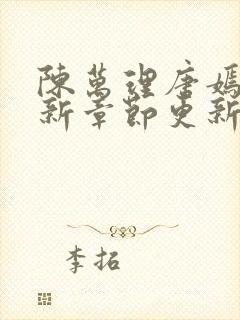 陳萬理唐嫣
新章節更新
李拓